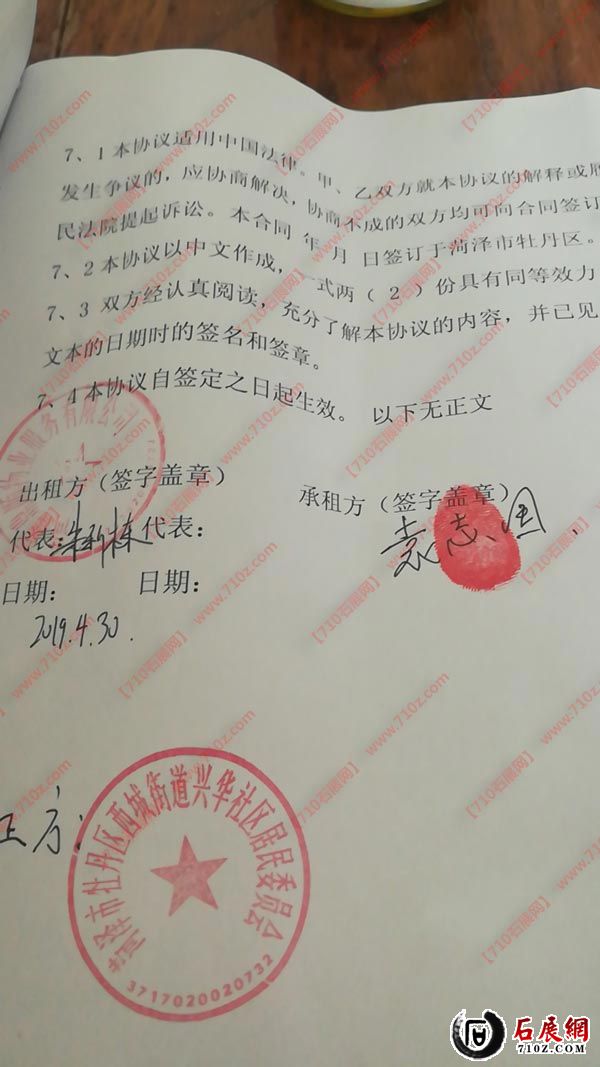 7、1本协议适用中国法律。甲、乙双方就本协议的解释或履
发生争议的，应协商解决，协商不成的双方均可向合同签订
民法院提起诉讼。本合同 年 月 日签订于菏泽市牡丹区。
7、2本协议以中文作成，一式两（2）份具有同等效力
7、3 双方经认真阅读，充分了解本协议的内容，并已见
文本的日期时的签名和签章。
7、4本协议自签定之日起生效。 以下无正文
业服务有限公司
出租方（签字盖章） 承租方（签字盖章）
代表： 代表： 袁志国
日期： 日期：
2019.4.30.
方：
菏泽市牡丹区西城街道兴华社区居民委员会
3717020020732
【710石展网】 www.710z.com
石展網
710Z.COM